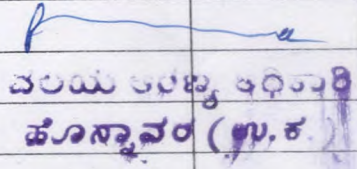 ವಲಯ ಅರಣ್ಯ ಅಧಿಕಾರಿ
ಹೊನ್ನಾವರ (ಉ.ಕ)